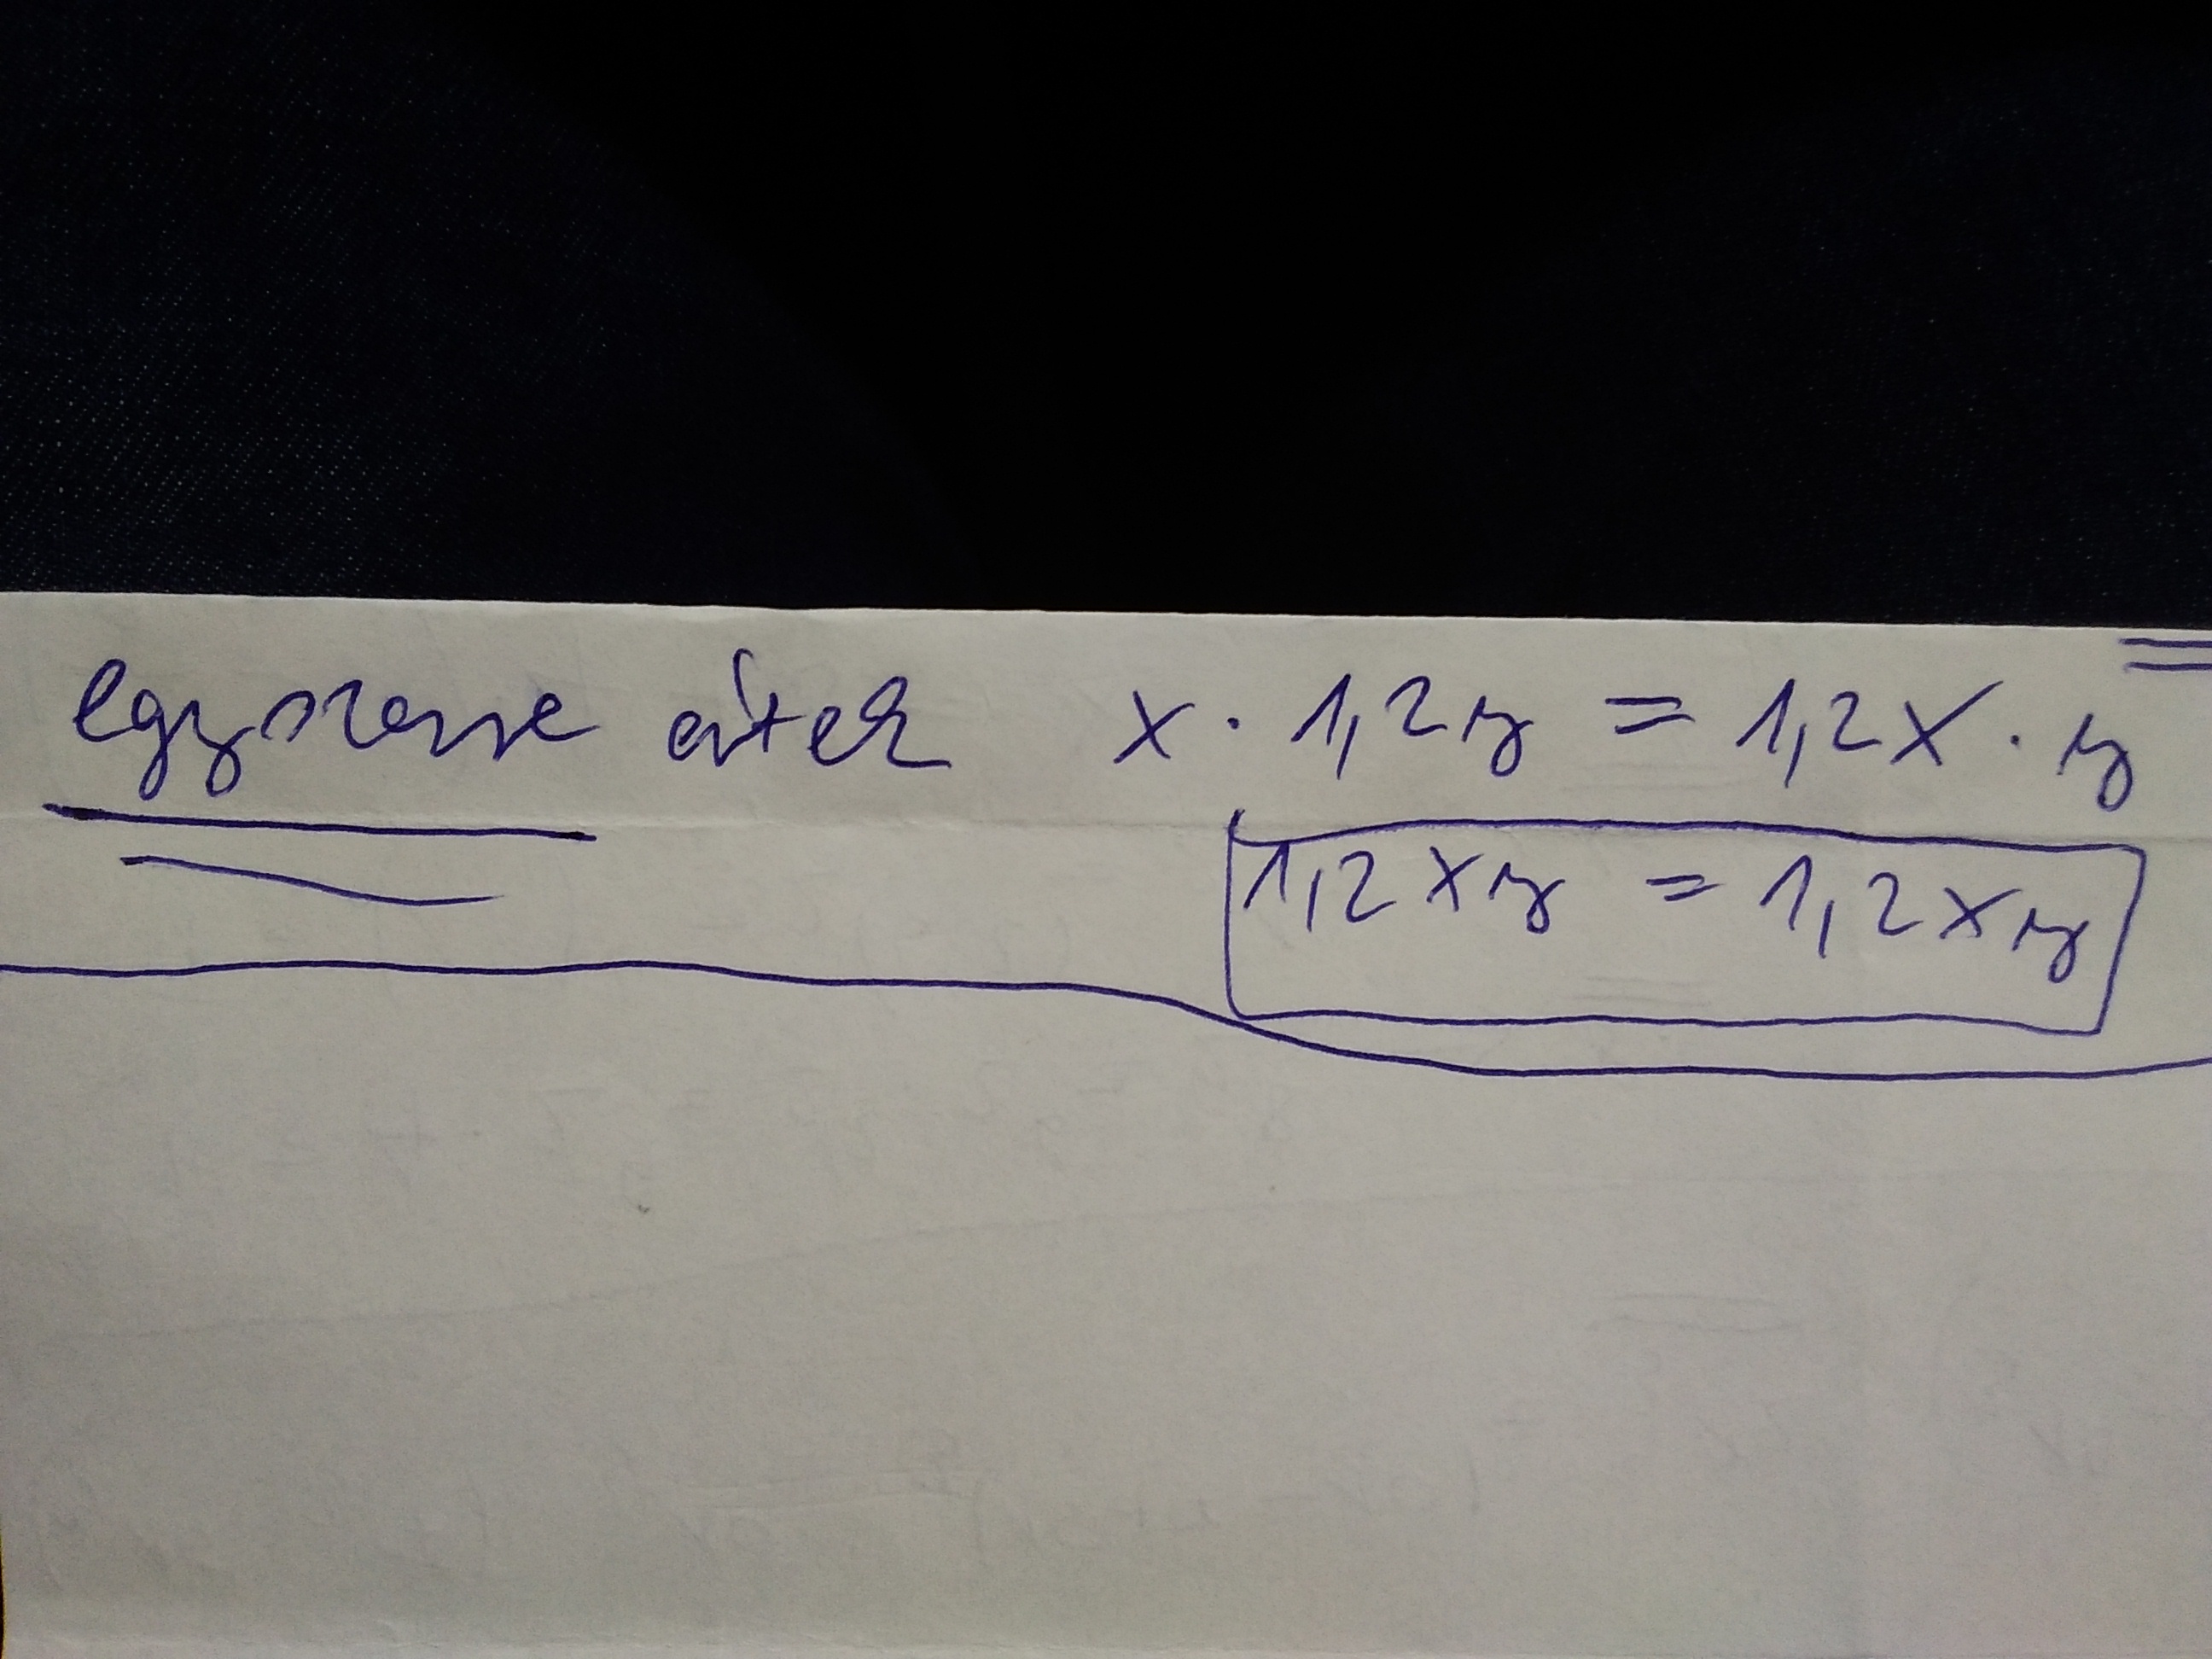 egyszerre értek x · 1,2y = 1,2x · y
1,2xy = 1,2xy